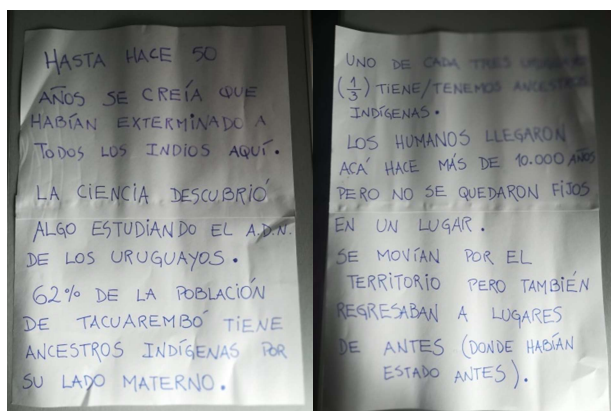 HASTA HACE 50
AÑOS SE CREÍA QUE
HABÍAN EXTERMINADO A
TODOS LOS INDIOS AQUÍ.
LA CIENCIA DESCUBRIÓ
ALGO ESTUDIANDO EL A.D.N.
DE LOS URUGUAYOS.
62% DE LA POBLACIÓN
DE TACUAREMBÓ TIENE
ANCESTROS INDÍGENAS POR
SU LADO MATERNO.
UNO DE CADA TRES
(1/3) TIENE/TENEMOS ANCESTROS
INDÍGENAS.
LOS HUMANOS LLEGARON
ACÁ HACE MÁS DE 10.000 AÑOS
PERO NO SE QUEDARON FIJOS
EN UN LUGAR.
SE MOVÍAN POR EL
TERRITORIO PERO TAMBIÉN
REGRESABAN A LUGARES
DE ANTES (DONDE HABÍAN
ESTADO ANTES).